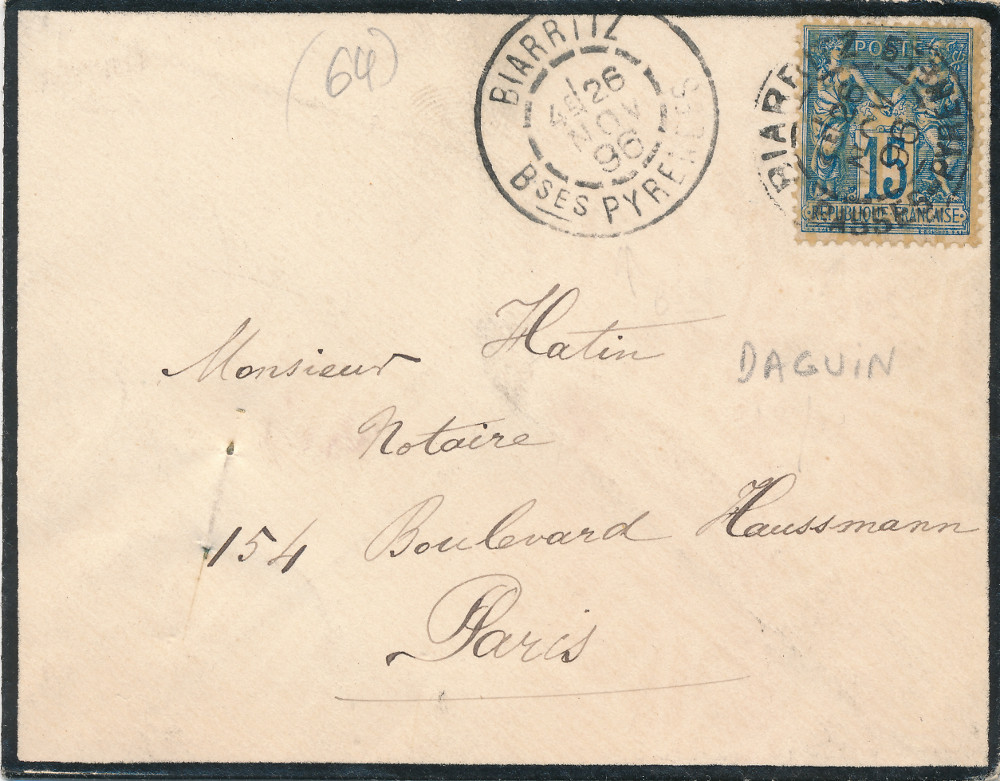 (64)
BIARRITZ
1
4E 26
NOV
96
BSES PYRENEES
POSTE
15
REPUBLIQUE FRANÇAISE
Monsieur Hatin
DAGUIN
Notaire
154 Boulevard Haussmann
Paris